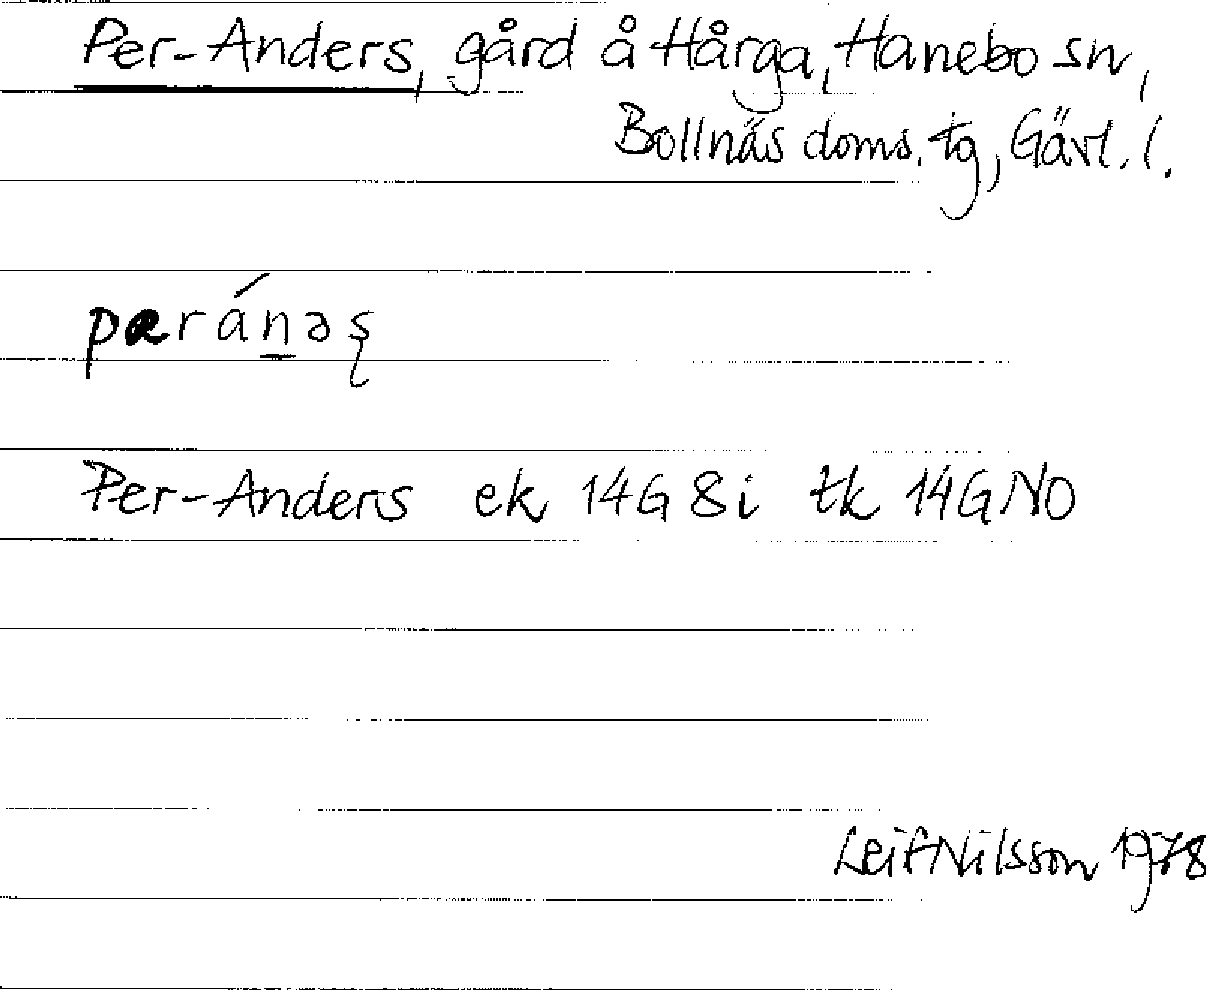 Per-Anders, gård å Hårga, Hanebo sn,
Bollnäs doms. tg, Gävl. l.
pæránəş
Per-Anders ek 14G 8i tk 14G NO
Leif Nilsson 1978